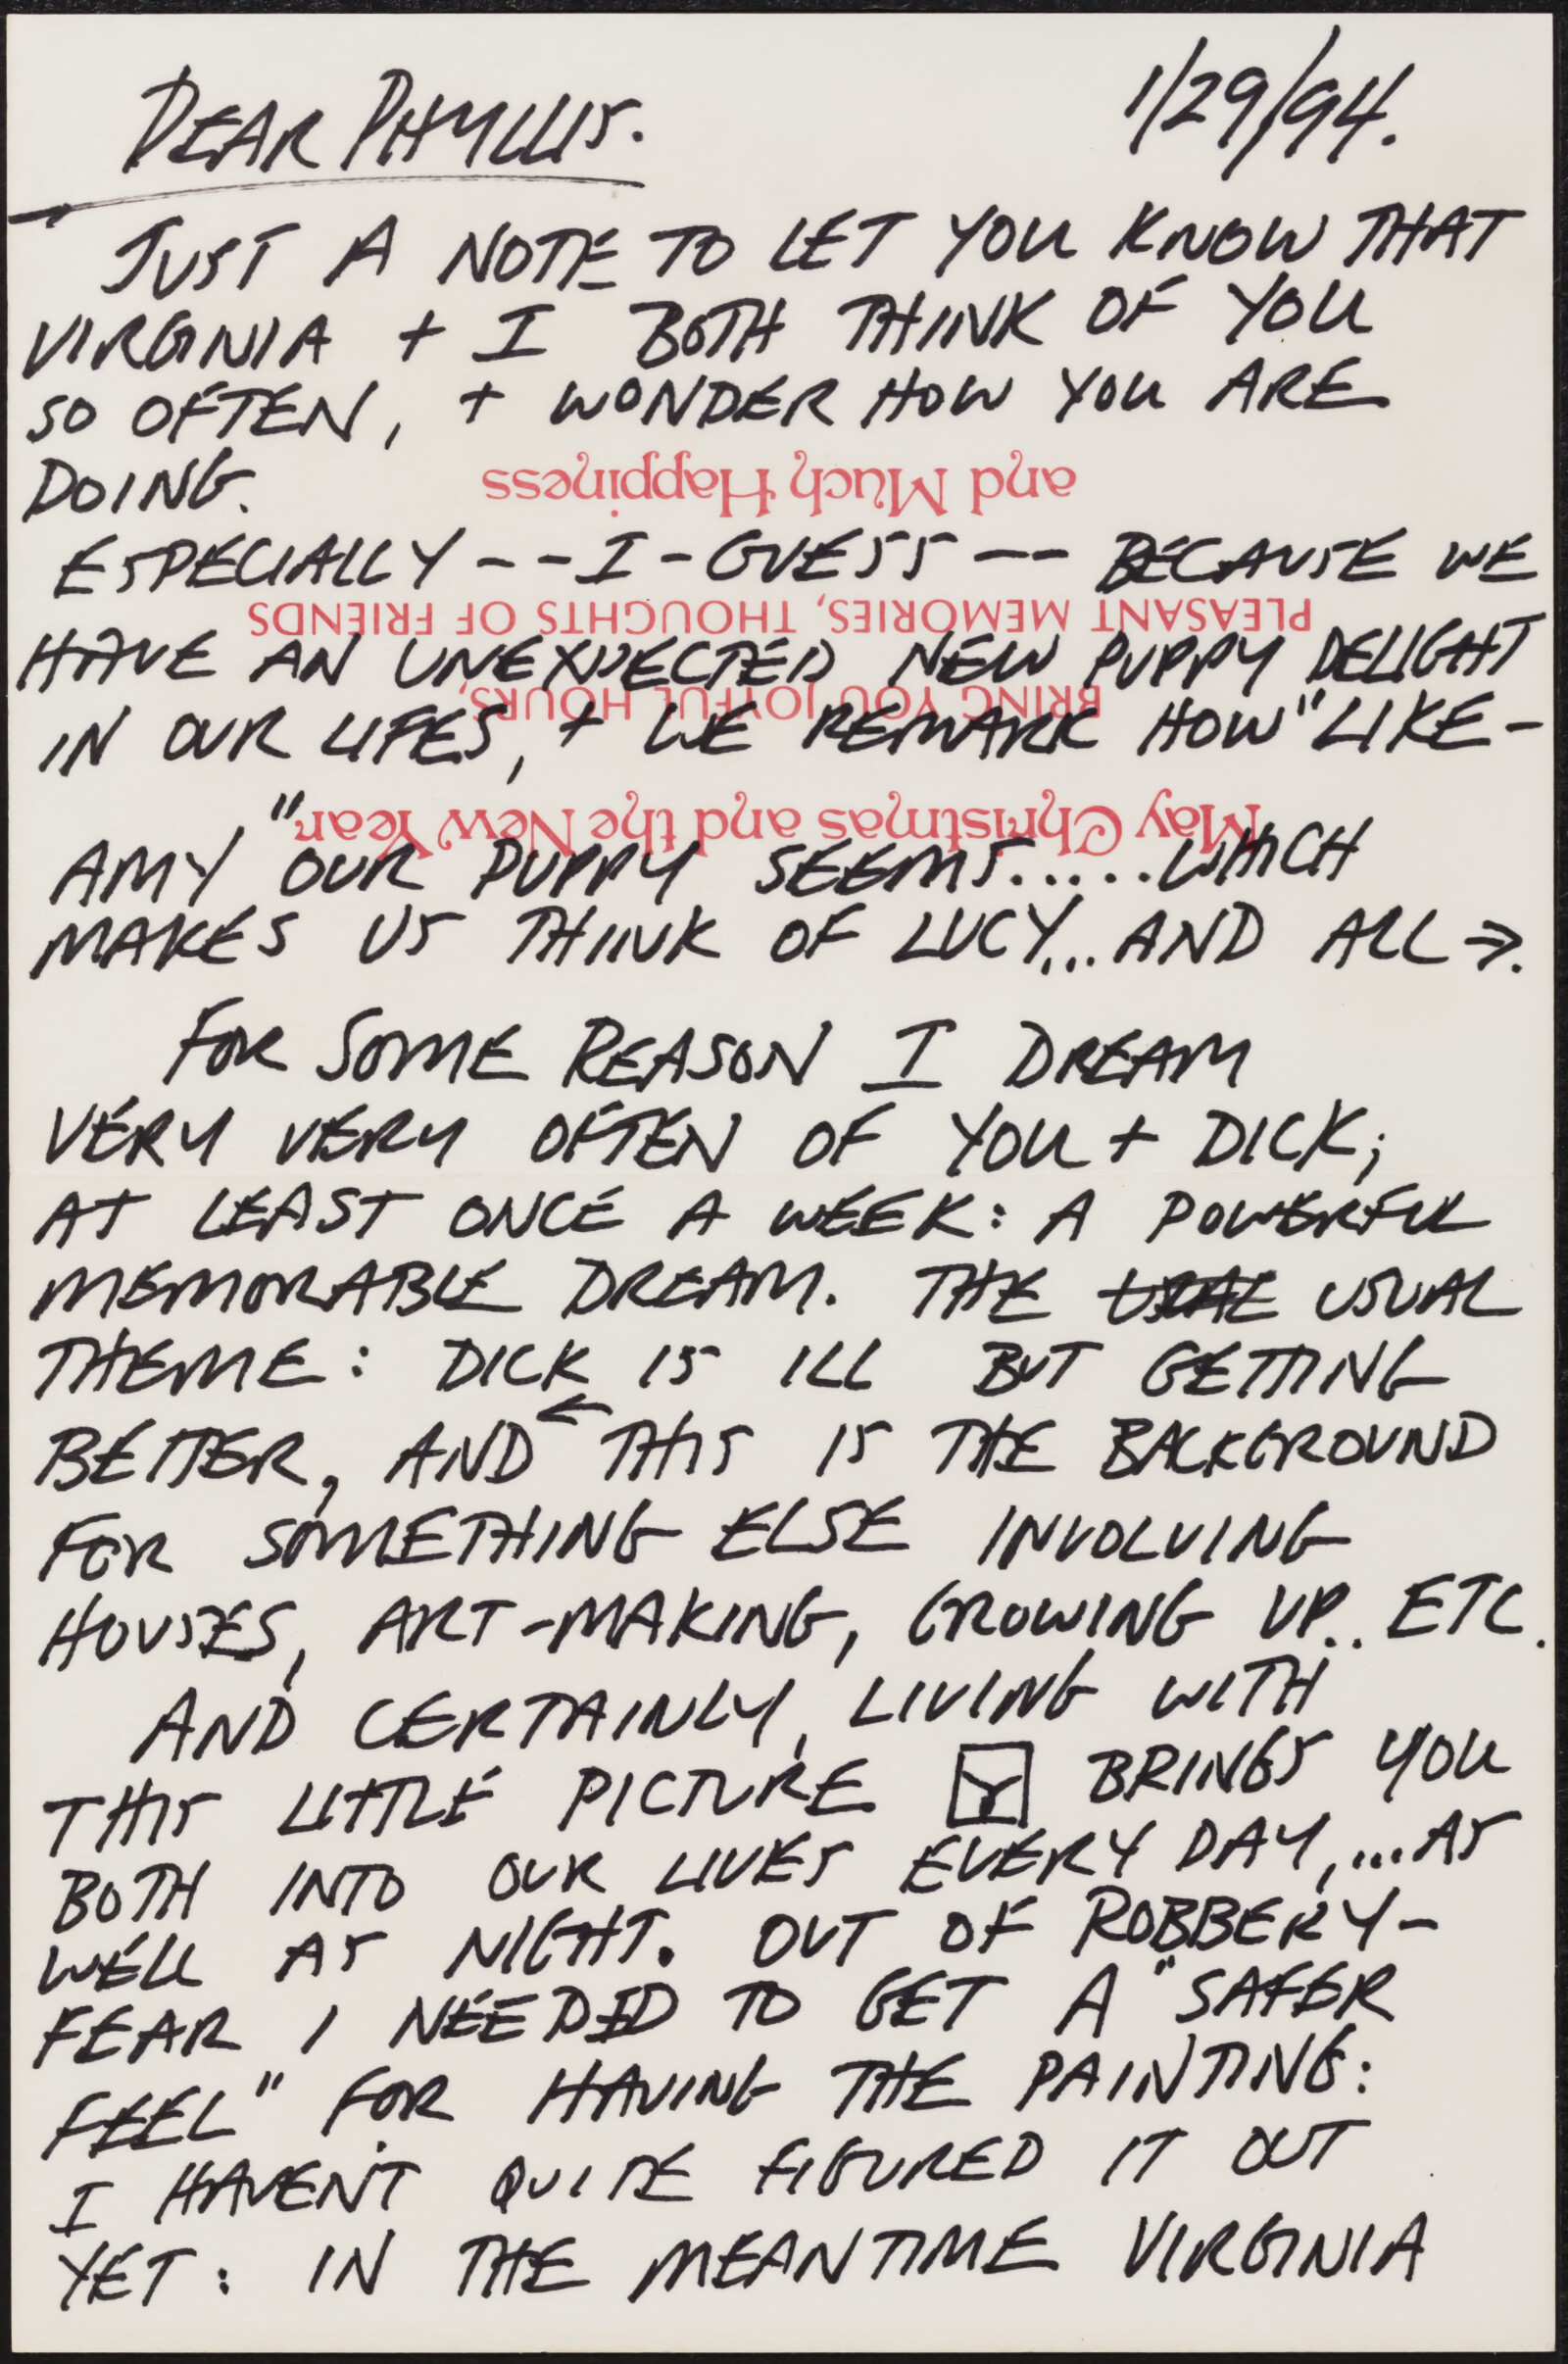 1/29/94.
DEAR PHYLLIS.
JUST A NOTE TO LET YOU KNOW THAT
VIRGINIA + I BOTH THINK OF YOU
SO OFTEN, + WONDER HOW YOU ARE
DOING.
and Much Happiness
ESPECIALLY -- I - GUESS -- BECAUSE WE
PLEASANT MEMORIES, THOUGHTS OF FRIENDS
HAVE AN UNEXPECTED NEW PUPPY DELIGHT
BRING YOU JOYFUL HOURS,
IN OUR LIFES, + WE REMARK HOW "LIKE-
May Christmas and the New Year
AMY" OUR PUPPY SEEMS.....WHICH
MAKES US THINK OF LUCY... AND ALL ⇒.
FOR SOME REASON I DREAM
VERY VERY OFTEN OF YOU + DICK;
AT LEAST ONCE A WEEK: A POWERFUL
MEMORABLE DREAM. THE USUAL
THEME: DICK IS ILL BUT GETTING
BETTER, AND ← THIS IS THE BACKGROUND
FOR SOMETHING ELSE INVOLVING
HOUSES, ART-MAKING, GROWING UP.. ETC.
AND CERTAINLY, LIVING WITH
THIS LITTLE PICTURE BRINGS YOU
BOTH INTO OUR LIVES EVERY DAY,... AS
WELL AS NIGHT. OUT OF ROBBERY-
FEAR I NEEDED TO GET A "SAFER
FEEL" FOR HAVING THE PAINTING:
I HAVEN'T QUITE FIGURED IT OUT
YET: IN THE MEANTIME VIRGINIA